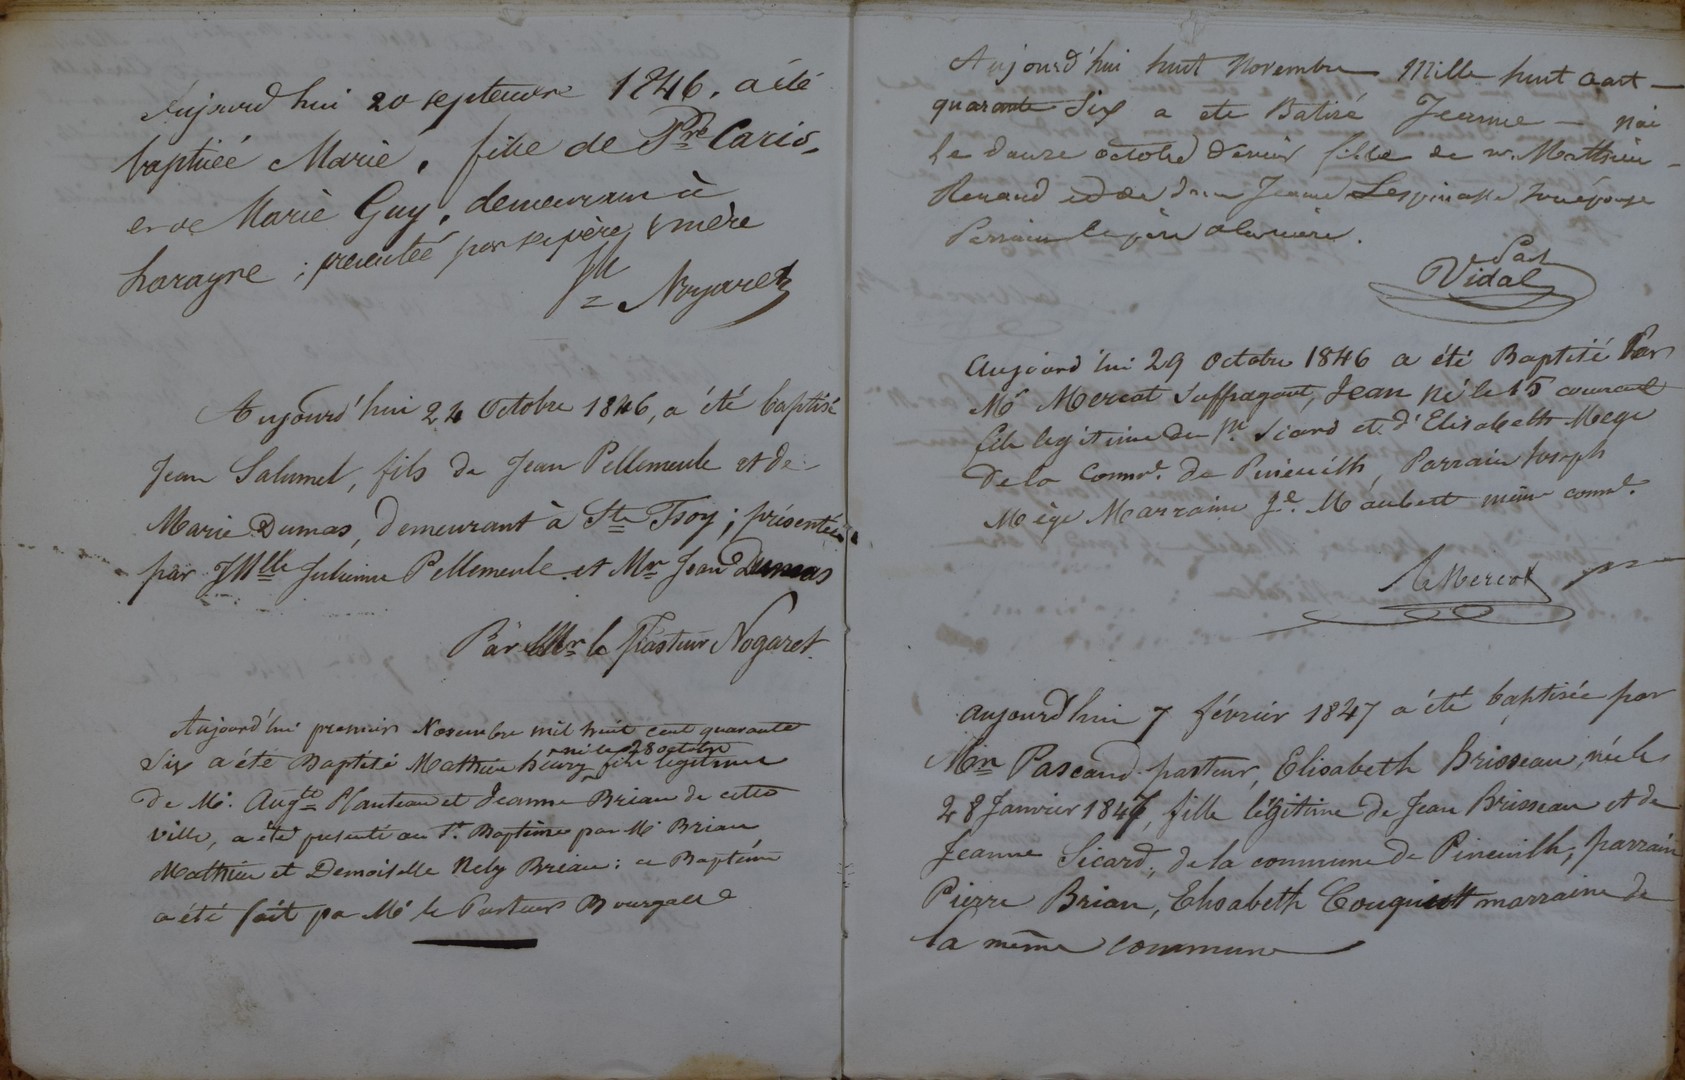 Aujourd'hui 20 septembre 1846. a été
baptisée Marie, fille de Pre Cario,
et de Marie Guy, demeurant à
harayre ; presentée par ses père & mère
Nogaret
Aujourd'hui 24 Octobre 1846, a été baptisé
Jean Salumet, fils de Jean Pellemeule et de
Marie Dumas, demeurant à Ste Foy ; présenté
par Mlle Julienne Pellemeule et Mr Jean Dumas
Par Mr le Pasteur Nogaret.
Aujourd'hui premier Novembre mil huit cent quarante
Six a été Baptisé Mathieu henry né le 28 octobre fils legitime
De Mr. Augte Planteau et Jeanne Briau de cette
ville, a été presenté au St. Baptême par Mr Briau
Mathieu et Demoiselle Nely Briau : ce Baptême
a été fait pa Mr le Pasteur Bourgade
Aujourd'hui huit Novembre Mille huit Cant
quarante Six a ete Batisé Jeanne nai
le douze octobre dernier fille de Mr. Mathieu
Renaud et de Jeanne Lespinasse son épouse
Parrain le père la mère.
Past
Vidal
Aujourd'hui 29 Octobre 1846 a été Baptisé Par
Mr Mercat Suffragant, Jean né le 15 courant
fils legitime de Pre Sicard et d'Elisabeth Mege
De la Commne. de Pineuilh, Parrain Joseph
Mège Marraine Je. Maubert même comme.
Le Mercat
Aujourd'hui 7 février 1847 a été baptisée par
Mr Pascaud pasteur, Elisabeth Brisseau, née le
28 Janvier 1847, fille légitime de Jean Brisseau et de
Jeanne Sicard, de la commune de Pineuilh ; parrain
Pierre Briau, Elisabeth Couquiett marraine de
la même commune